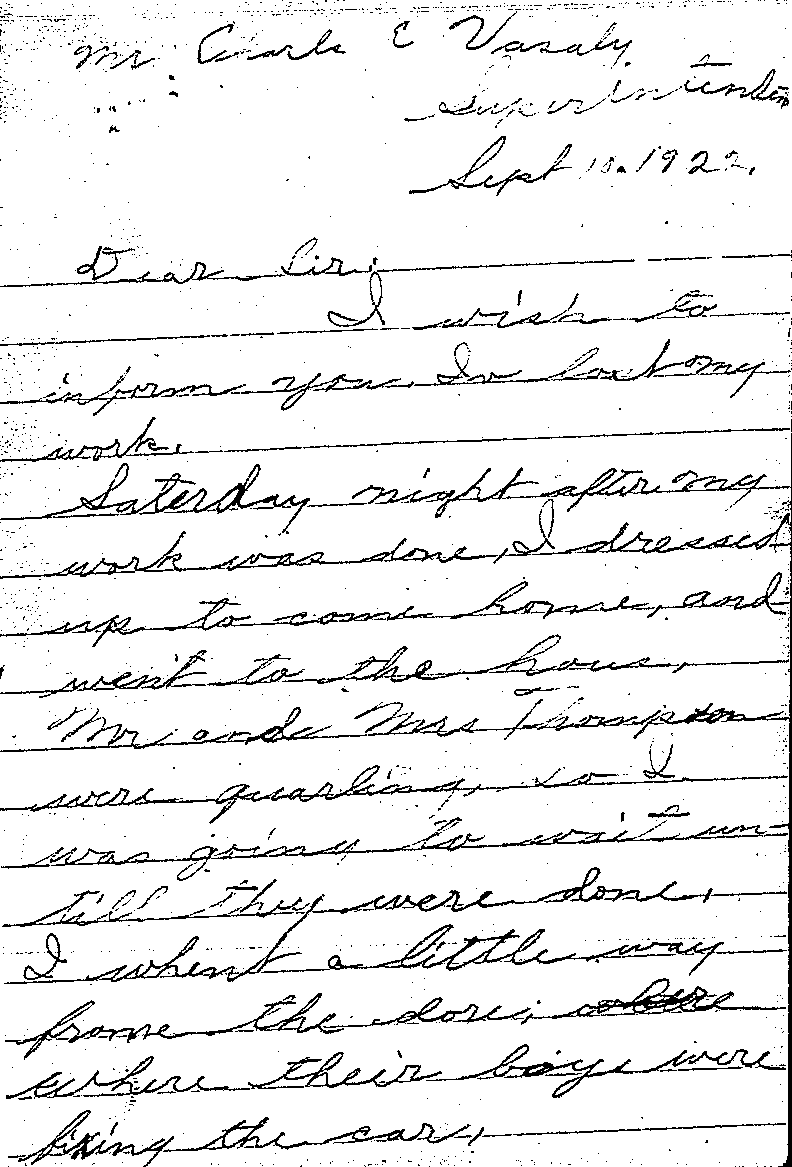 Mr Carle E Vasaly
Superintenden
Sept 10. 1922.
Dear Sir,
I wish to
inform you. Iv lost my
work.
Saterday night after my
work was done, I dressed
up to come home, and
went to the hous,
Mr and Mrs Thompson
were quarling, so I
was going to wait un-
till they were done,
I whent a little way
frome the dore,
where their boys were
fixing the car,